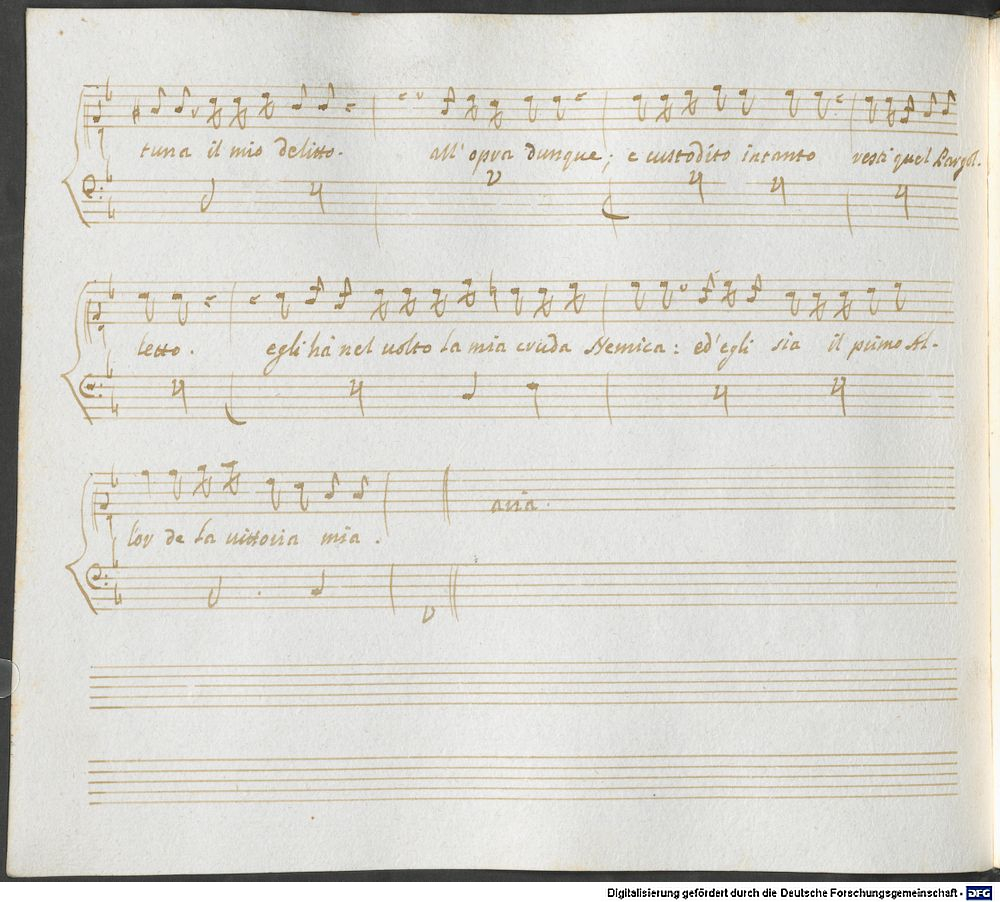 tuna il mio delitto. all'opra dunque; e custodito intanto resti quel Pargol-
letto. egli hà nel uolto la mia cruda Nemica: ed'egli sia il primo Al-
lor de la uittoria mia.
aria.
Digitalisierung gefördert durch die Deutsche Forschungsgemeinschaft - DFG